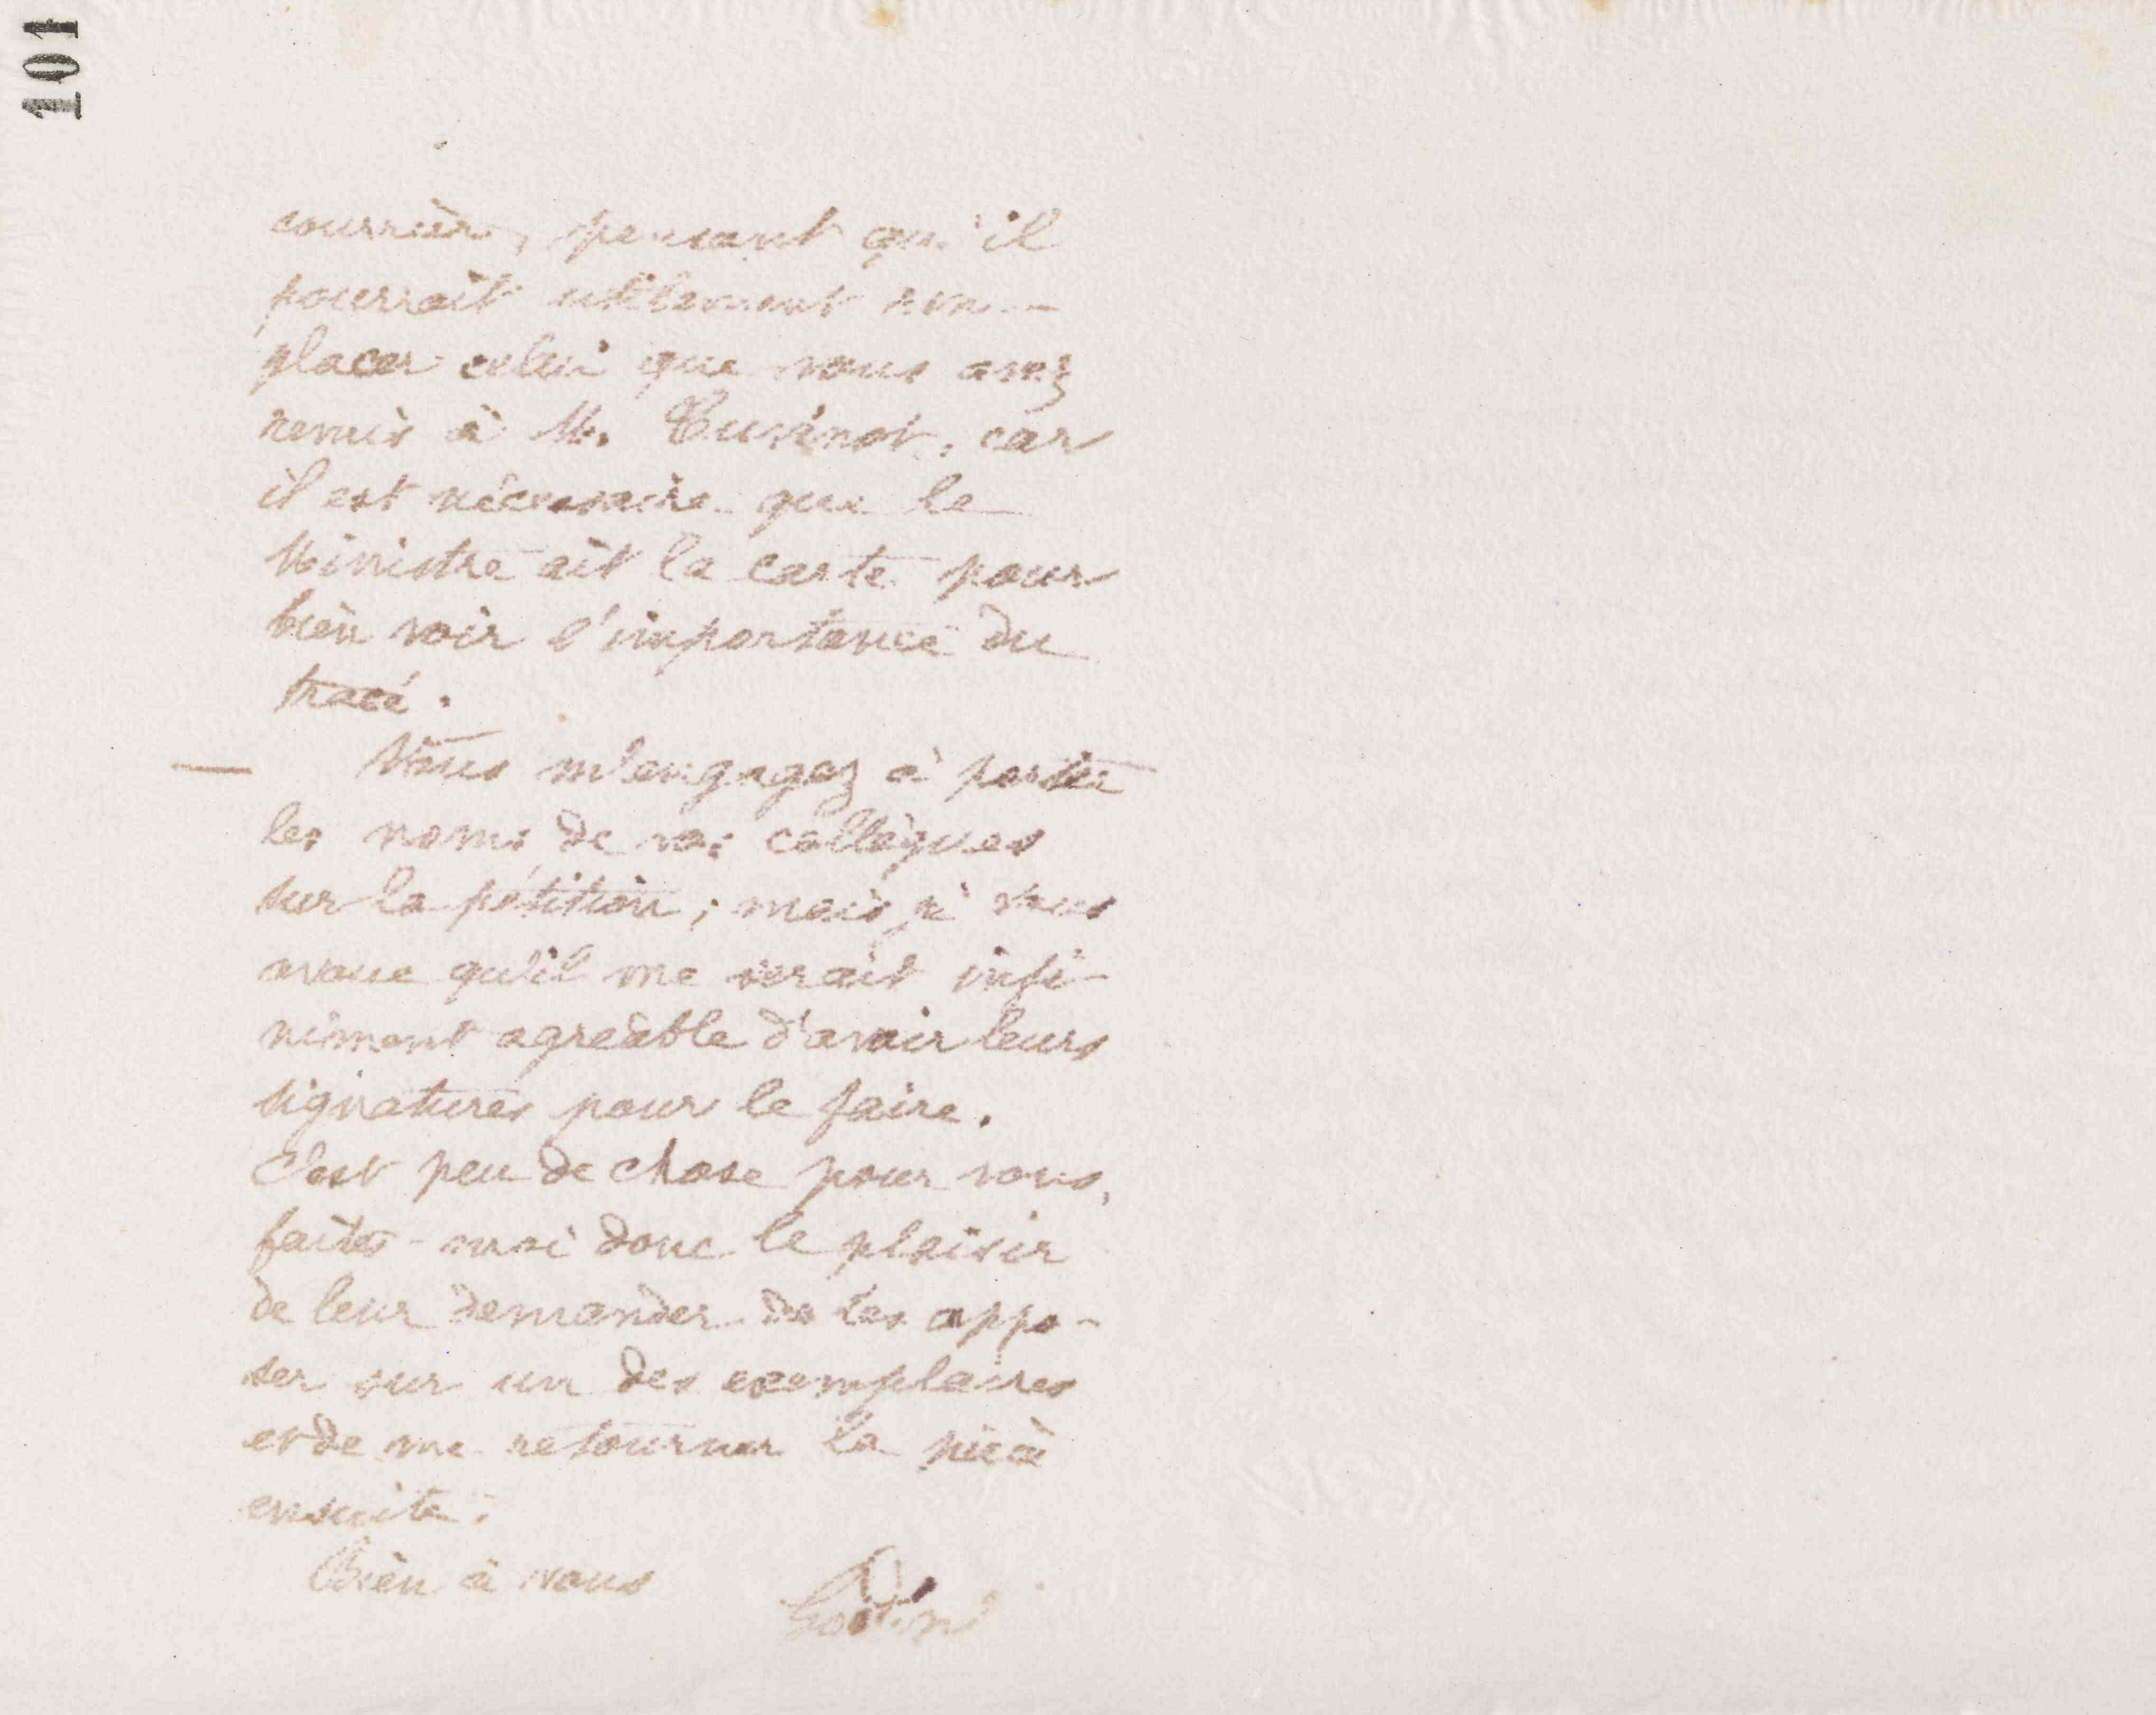 101
courrier, pensant qu'il
pourrait utilement rem-
placer celui que vous avez
remis à M. Turinot, car
il est nécessaire que le
Ministre ait la carte pour
bien voir l'importance du
tracé.
Vous m'engagez à porter
les noms de vos collègues
sur la pétition ; mais je vous
avoue qu'il me serait infi-
niment agréable d'avoir leurs
signatures pour le faire.
C'est peu de chose pour vous,
faites-moi donc le plaisir
de leur demander de les appo-
ser sur un des exemplaires
et de me retourner la pièce
ensuite.
Bien à vous
Godin